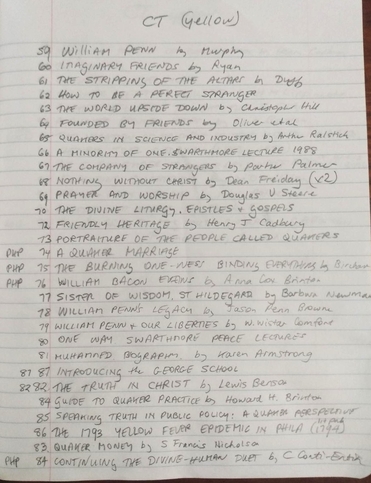 CT (yellow)
59 WILLIAM PENN by Murphy
60 IMAGINARY FRIENDS by Ryan
61 THE STRIPPING OF THE ALTARS by Duffy
62 HOW TO BE A PERECT STRANGER
63 THE WORLD UPSIDE DOWN by Christopher Hill
64 FOUNDED BY FRIENDS by Oliver etal
65 QUAKERS IN SCIENCE AND INDUSTRY by Arthur Raistrick
66 A MINORITY OF ONE. SWARTHMORE LECTURE 1988
67 THE COMPANY OF STRANGERS by Parker Palmer
68 NOTHING WITHOUT CHRIST by Dean Freiday (x2)
69 PRAYER AND WORSHIP by Douglas V Steere
70 THE DIVINE LITURGY. EPISTLES + GOSPELS
72 FRIENDLY HERITAGE by Henry J Cadbury
73 PORTRAITURE OF THE PEOPLE CALLED QUAKERS
PHP 74 A QUAKER MARRIAGE
PHP 75 THE BURNING ONE-NESS BINDING EVERYTHING by Birchard
PHP 76 WILLIAM BACON EVANS by Anna Cox Brinton
77 SISTER OF WISDOM, ST HILDEGARD by Barbara Newman
78 WILLIAM PENN'S LEGACY by Jason Penn Browne
79 WILLIAM PENN + OUR LIBERTIES by W. Wister Comfort
80 ONE WAY SWARTHMORE PEACE LECTURES
81 MUHAMMED BIOGRAPHY by Karen Armstrong
87 87 INTRODUCING the GEORGE SCHOOL
82 82 THE TRUTH IN CHRIST by Lewis Benson
84 GUIDE TO QUAKER PRACTICE by Howard H. Brinton
85 SPEAKING TRUTH IN PUBLIC POLICY: A QUAKER PERSPECTIVE
86 THE 1793 YELLOW FEVER EPIDEMIC IN PHILA (1794)
83 QUAKER MONEY by S Francis Nicholson
PHP 84 CONTINUING THE DIVINE-HUMAN DUET by C Conti-Entin